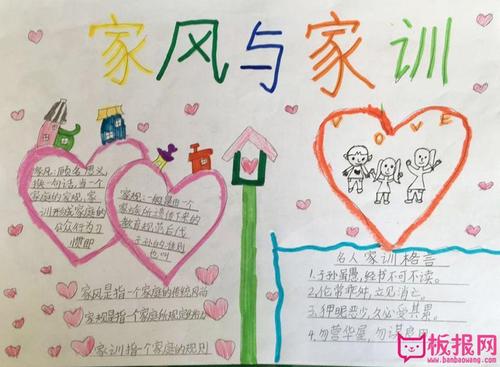 家风与家训
LOVE
家风：顾名思义，
换一句话，当一个
家庭的家规、家
训形成家庭的
公众行为习
惯吧
家规：一般是由一个
家族所遗传下来的
教育规范后代
子孙的准则
也叫
家风是指一个家庭的传统风尚
家规是指一个家庭所规定的
家训指一个家庭的规则
名人家训格言
1.子孙虽愚，经书不可不读。
2.伦常乖舛，立见消亡。
3.狎昵恶少，久必受其累。
4.勿营华屋，勿谋良田
板报网
www.banbaowang.com